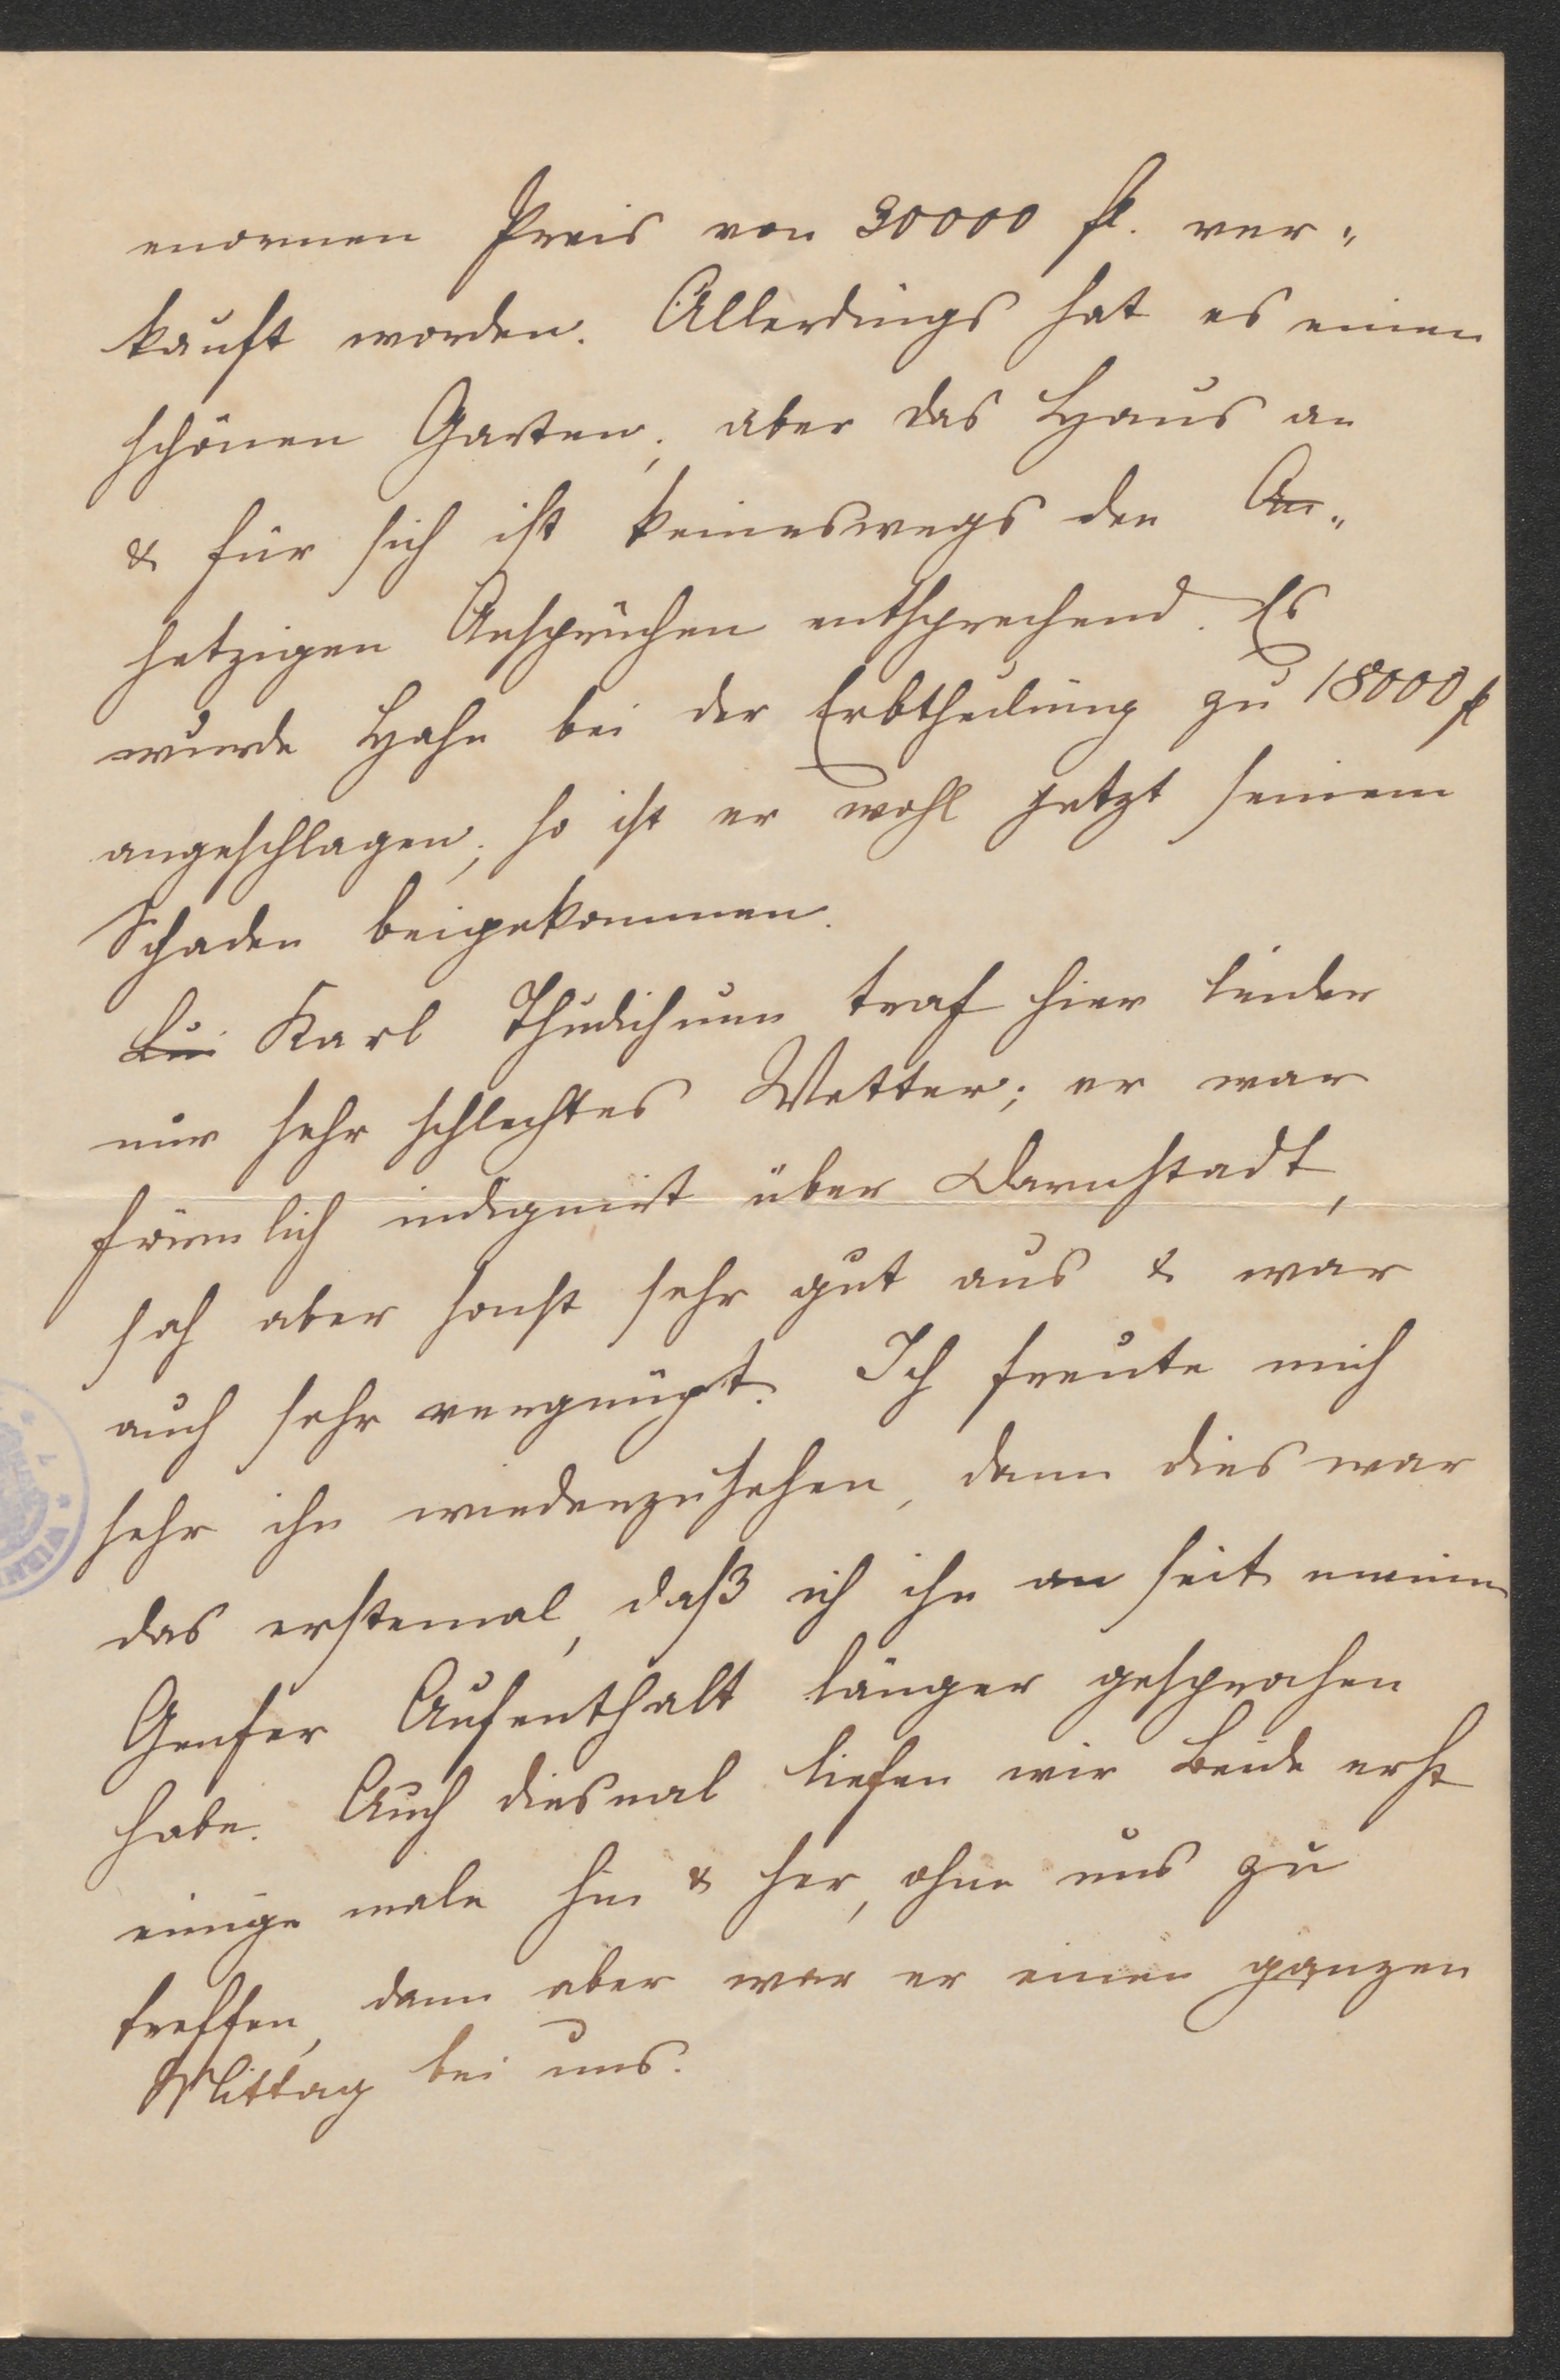 enormen Preis von 30000 fl. ver-
kauft worden. Allerdings hat es einen
schönen Garten; aber das Haus an
& für sich ist keineswegs den An-
jetzigen Ansprüchen entsprechend. Es
wurde Hahn bei der Erbtheilung zu 18000 fl
angeschlagen; so ist er wohl jetzt seinem
Schaden beigekommen.
Bei Karl Thudichum traf hier leider
nur sehr schlechtes Wetter; er war
förmlich indignirt über Darmstadt,
sah aber sonst sehr gut aus & war
auch sehr vergnügt. Ich freute mich
sehr ihn wiederzusehen, denn dies war
das erstemal, daß ich ihn an seit meinem
Genfer Aufenthalt länger gesprochen
habe. Auch diesmal liefen wir Beide erst
einige male hin & her, ohne uns zu
treffen, dann aber war er einen ganzen
Mittag bei uns.